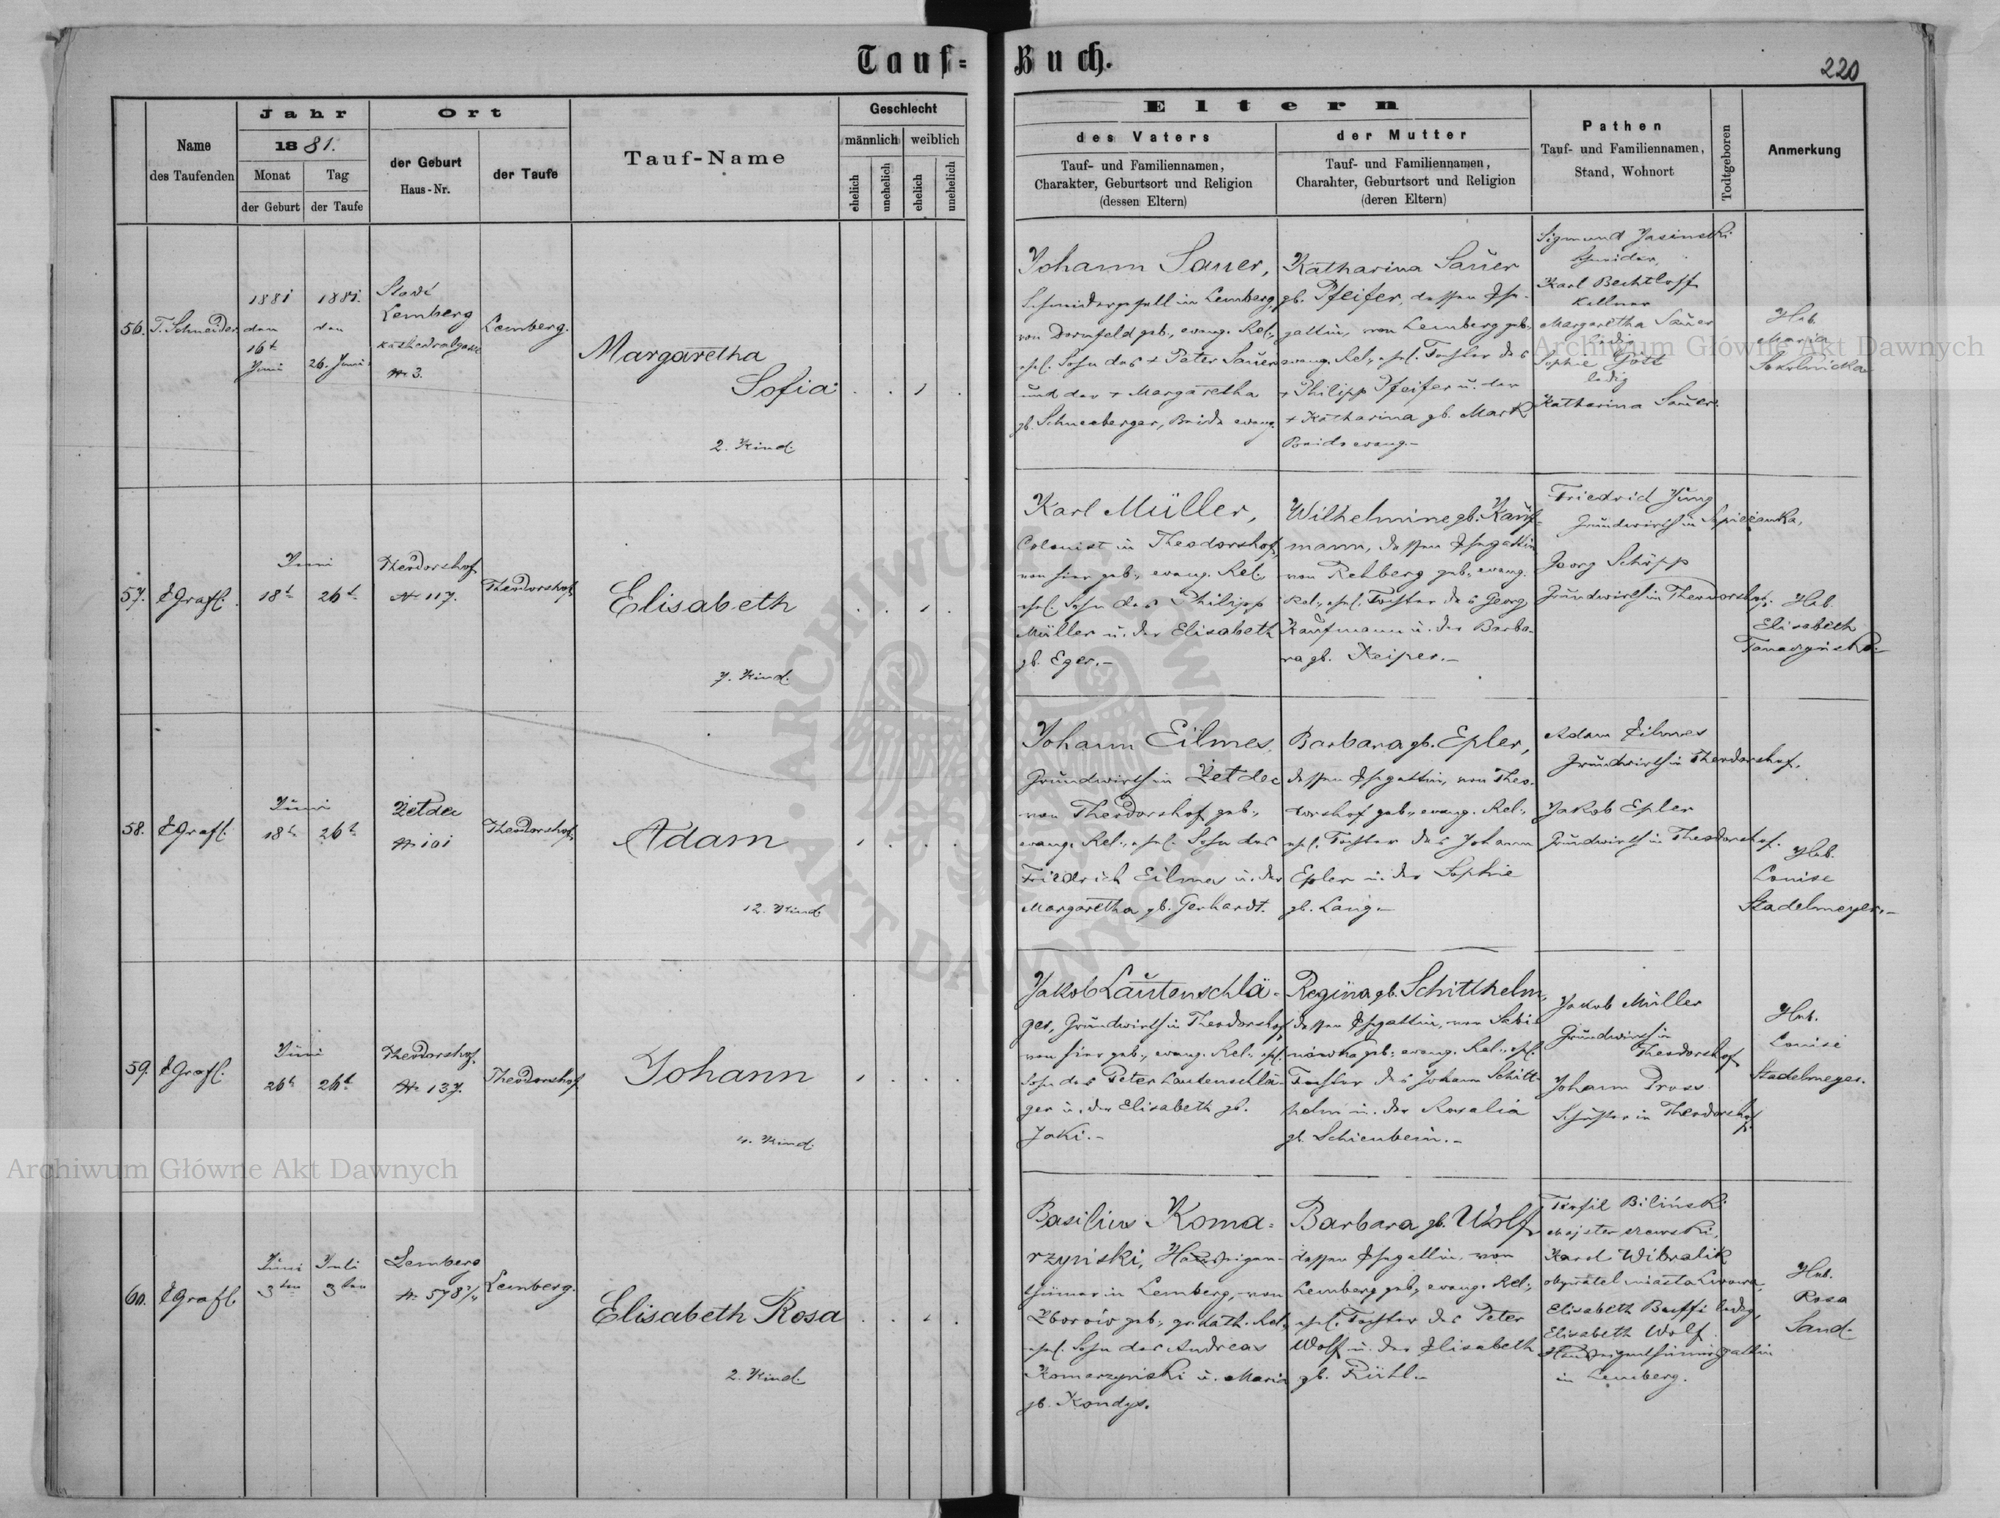 Tauf=Buch.
220
Name
des Taufenden
Jahr
1881.
Monat
der Geburt
Tag
der Taufe
Ort
der Geburt
Haus-Nr.
der Taufe
Tauf-Name
Geschlecht
männlich
weiblich
ehelich
unehelich
ehelich
unehelich
Eltern
des Vaters
Tauf- und Familiennamen,
Charakter, Geburtsort und Religion
(dessen Eltern)
der Mutter
Tauf- und Familiennamen,
Charahter, Geburtsort und Religion
(deren Eltern)
Pathen
Tauf- und Familiennamen,
Stand, Wohnort
Todtgeboren
Anmerkung
56.
T. Schneider
1881
den
16t
Juni
1881.
den
26. Juni
Stadt
Lemberg
Kathedralgasse
№ 3.
Lemberg.
Margaretha
Sofia
2. Kind.
Johann Sauer,
von Dornfeld geb., evang. Rel.,
ehel. Sohn des + Peter Sauer
und der + Margaretha
gb. Schneeberger, Beide evang.
Katharina Sauer
gb. Pfeifer, dessen Ehe-
gattin, von Lemberg geb.,
evang. Rel., ehel. Tochter des
+ Philipp Pfeifer u. der
+ Katharina gb. Mark
Beide evang.-
Sigmund Jasinski
Schneider,
Karl Bechtloff
Kellner
Margaretha Sauer
ledig
Sophie Gött
ledig
Katharina Sauer.
Heb.
Maria
Sokolnicka
57.
E Grafl.
Juni
18t
26t
Theodorshof
№ 117.
Theodorshof
Elisabeth
7. Kind.
Karl Müller,
Colonist in Theodorshof,
von hier geb., evang. Rel.,
ehel. Sohn des Philipp
Müller u. der Elisabeth
gb. Eger.-
Wilhelmine gb. Kauf-
mann, dessen Ehegattin
von Rehberg geb., evang.
Rel., ehel. Tochter des Georg
Kaufmann u. der Barba-
ra gb. Keiper.-
Friedrich Jung
Grundwirth in
Georg Schöpp
Grundwirth in Theodorshof.
Heb.
Elisabeth
58.
E Grafl.
Juni
18t
26t
Zetdec
№ 101
Theodorshof
Adam
12. Kind
Johann Eilmes,
Grundwirth in Zetdec
von Theodorshof geb.,
evang. Rel., ehel. Sohn des
Friedrich Eilmes u. der
Margaretha gb. Gerhardt.
Barbara gb. Epler,
dessen Ehegattin, von Theo-
dorshof geb., evang. Rel.,
ehel. Tochter des Johann
Epler u. der Sophie
gb. Lang.-
Adam Eilmes
Grundwirth in Theodorshof.
Jakob Epler
Grundwirth in Theodorshof.
Heb.
Louise
Stadelmeyer.-
59.
E Grafl.
Juni
26t
26t
Theodorshof.
№ 137.
Theodorshof
Johann
4. Kind.
Jakob Lautenschlä-
ger, Grundwirth in Theodorshof,
von hier geb., evang. Rel., ehel.
Sohn des Peter Lautenschlä-
ger u. der Elisabeth gb.
Jaki.-
Regina gb. Schitthelm,
dessen Ehegattin, von Sabi-
nowka geb., evang. Rel., ehel.
Tochter des Johann Schitt-
helm u. der Rosalia
gb. Schienbein.-
Jakob Müller
Grundwirth in
Theodorshof
Johann Pross
Schuster in Theodorshof
Heb.
Louise
Stadelmeyer.
60.
E Grafl
Juni
3ten
Juli
3ten
Lemberg
№ 578 1/4
Lemberg.
Elisabeth Rosa
2. Kind.
Basilius Koma-
rzyński, Hauseigen-
thümer in Lemberg, von
Zborów geb., gr. kath. Rel.,
ehel. Sohn des Andreas
Komarzyński u. Maria
gb. Kondys.
Barbara gb. Wolf
dessen Ehegattin, von
Lemberg geb., evang. Rel.,
ehel. Tochter des Peter
Wolf u. der Elisabeth
gb. Rühl.-
Teofil Biliński
majster szewski,
Karol Wibralik
obywatel miasta Lwowa,
Elisabeth Buffi ledig,
Elisabeth Wolf
Hauseigenthümersgattin
in Lemberg.
Heb.
Rosa
Sand.
Archiwum Główne Akt Dawnych
Archiwum Główne Akt Dawnych
ARCHIWUM GŁÓWNE AKT DAWNYCH